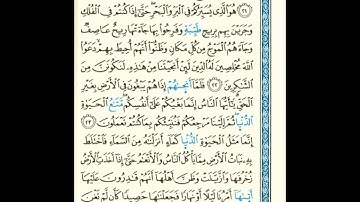 ٢١ هُوَ ٱلَّذِى يُسَيِّرُكُمْ فِى ٱلْبَرِّ وَٱلْبَحْرِ حَتَّىٰٓ إِذَا كُنتُمْ فِى ٱلْفُلْكِ
وَجَرَيْنَ بِهِم بِرِيحٍ طَيِّبَةٍ وَفَرِحُوا۟ بِهَا جَآءَتْهَا رِيحٌ عَاصِفٌ
وَجَآءَهُمُ ٱلْمَوْجُ مِن كُلِّ مَكَانٍ وَظَنُّوٓا۟ أَنَّهُمْ أُحِيطَ بِهِمْ دَعَوُا۟
ٱللَّهَ مُخْلِصِينَ لَهُ ٱلدِّينَ لَئِنْ أَنجَيْتَنَا مِنْ هَٰذِهِۦ لَنَكُونَنَّ مِنَ
ٱلشَّٰكِرِينَ ٢٢ فَلَمَّآ أَنجَىٰهُمْ إِذَا هُمْ يَبْغُونَ فِى ٱلْأَرْضِ بِغَيْرِ
ٱلْحَقِّ يَٰٓأَيُّهَا ٱلنَّاسُ إِنَّمَا بَغْيُكُمْ عَلَىٰٓ أَنفُسِكُم مَّتَٰعَ ٱلْحَيَوٰةِ
ٱلدُّنْيَا ثُمَّ إِلَيْنَا مَرْجِعُكُمْ فَنُنَبِّئُكُم بِمَا كُنتُمْ تَعْمَلُونَ ٢٣
إِنَّمَا مَثَلُ ٱلْحَيَوٰةِ ٱلدُّنْيَا كَمَآءٍ أَنزَلْنَٰهُ مِنَ ٱلسَّمَآءِ فَٱخْتَلَطَ
بِهِۦ نَبَاتُ ٱلْأَرْضِ مِمَّا يَأْكُلُ ٱلنَّاسُ وَٱلْأَنْعَٰمُ حَتَّىٰٓ إِذَآ أَخَذَتِ ٱلْأَرْضُ
زُخْرُفَهَا وَٱزَّيَّنَتْ وَظَنَّ أَهْلُهَآ أَنَّهُمْ قَٰدِرُونَ عَلَيْهَآ
أَتَىٰهَآ أَمْرُنَا لَيْلًا أَوْ نَهَارًا فَجَعَلْنَٰهَا حَصِيدًا كَأَن لَّمْ تَغْنَ